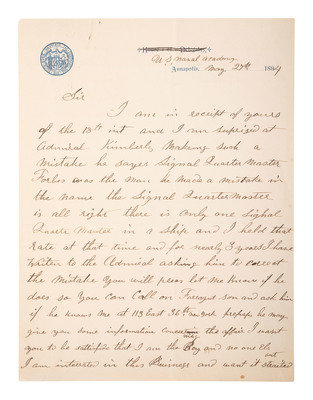 U.S. Naval Academy
Annapolis, May 27th 1889
Sir
I am in receipt of yours
of the 13th int and I am suprized at
Admiral Kimberly, Making such a
Mistake he sayes Signal Quarter Master
Forbs was the Man he made a Mistake in
the name the Signal Quarter Master
is all right there is only one Signal
Quarter Master in a ship and I held that
Rate at that time and for nearly 3 years I have
writen to the Admiral asking him to corect
the Mistake You will pleas let Me Know if he
does so you can Call on Farragut son and ask him
if he knows Me at 113 East 36th New York prehaps he may
give you some information concerning the affair I want
you to be satisfide that I am the Boy and no one Els
I am intrested in this Business and want it straited out